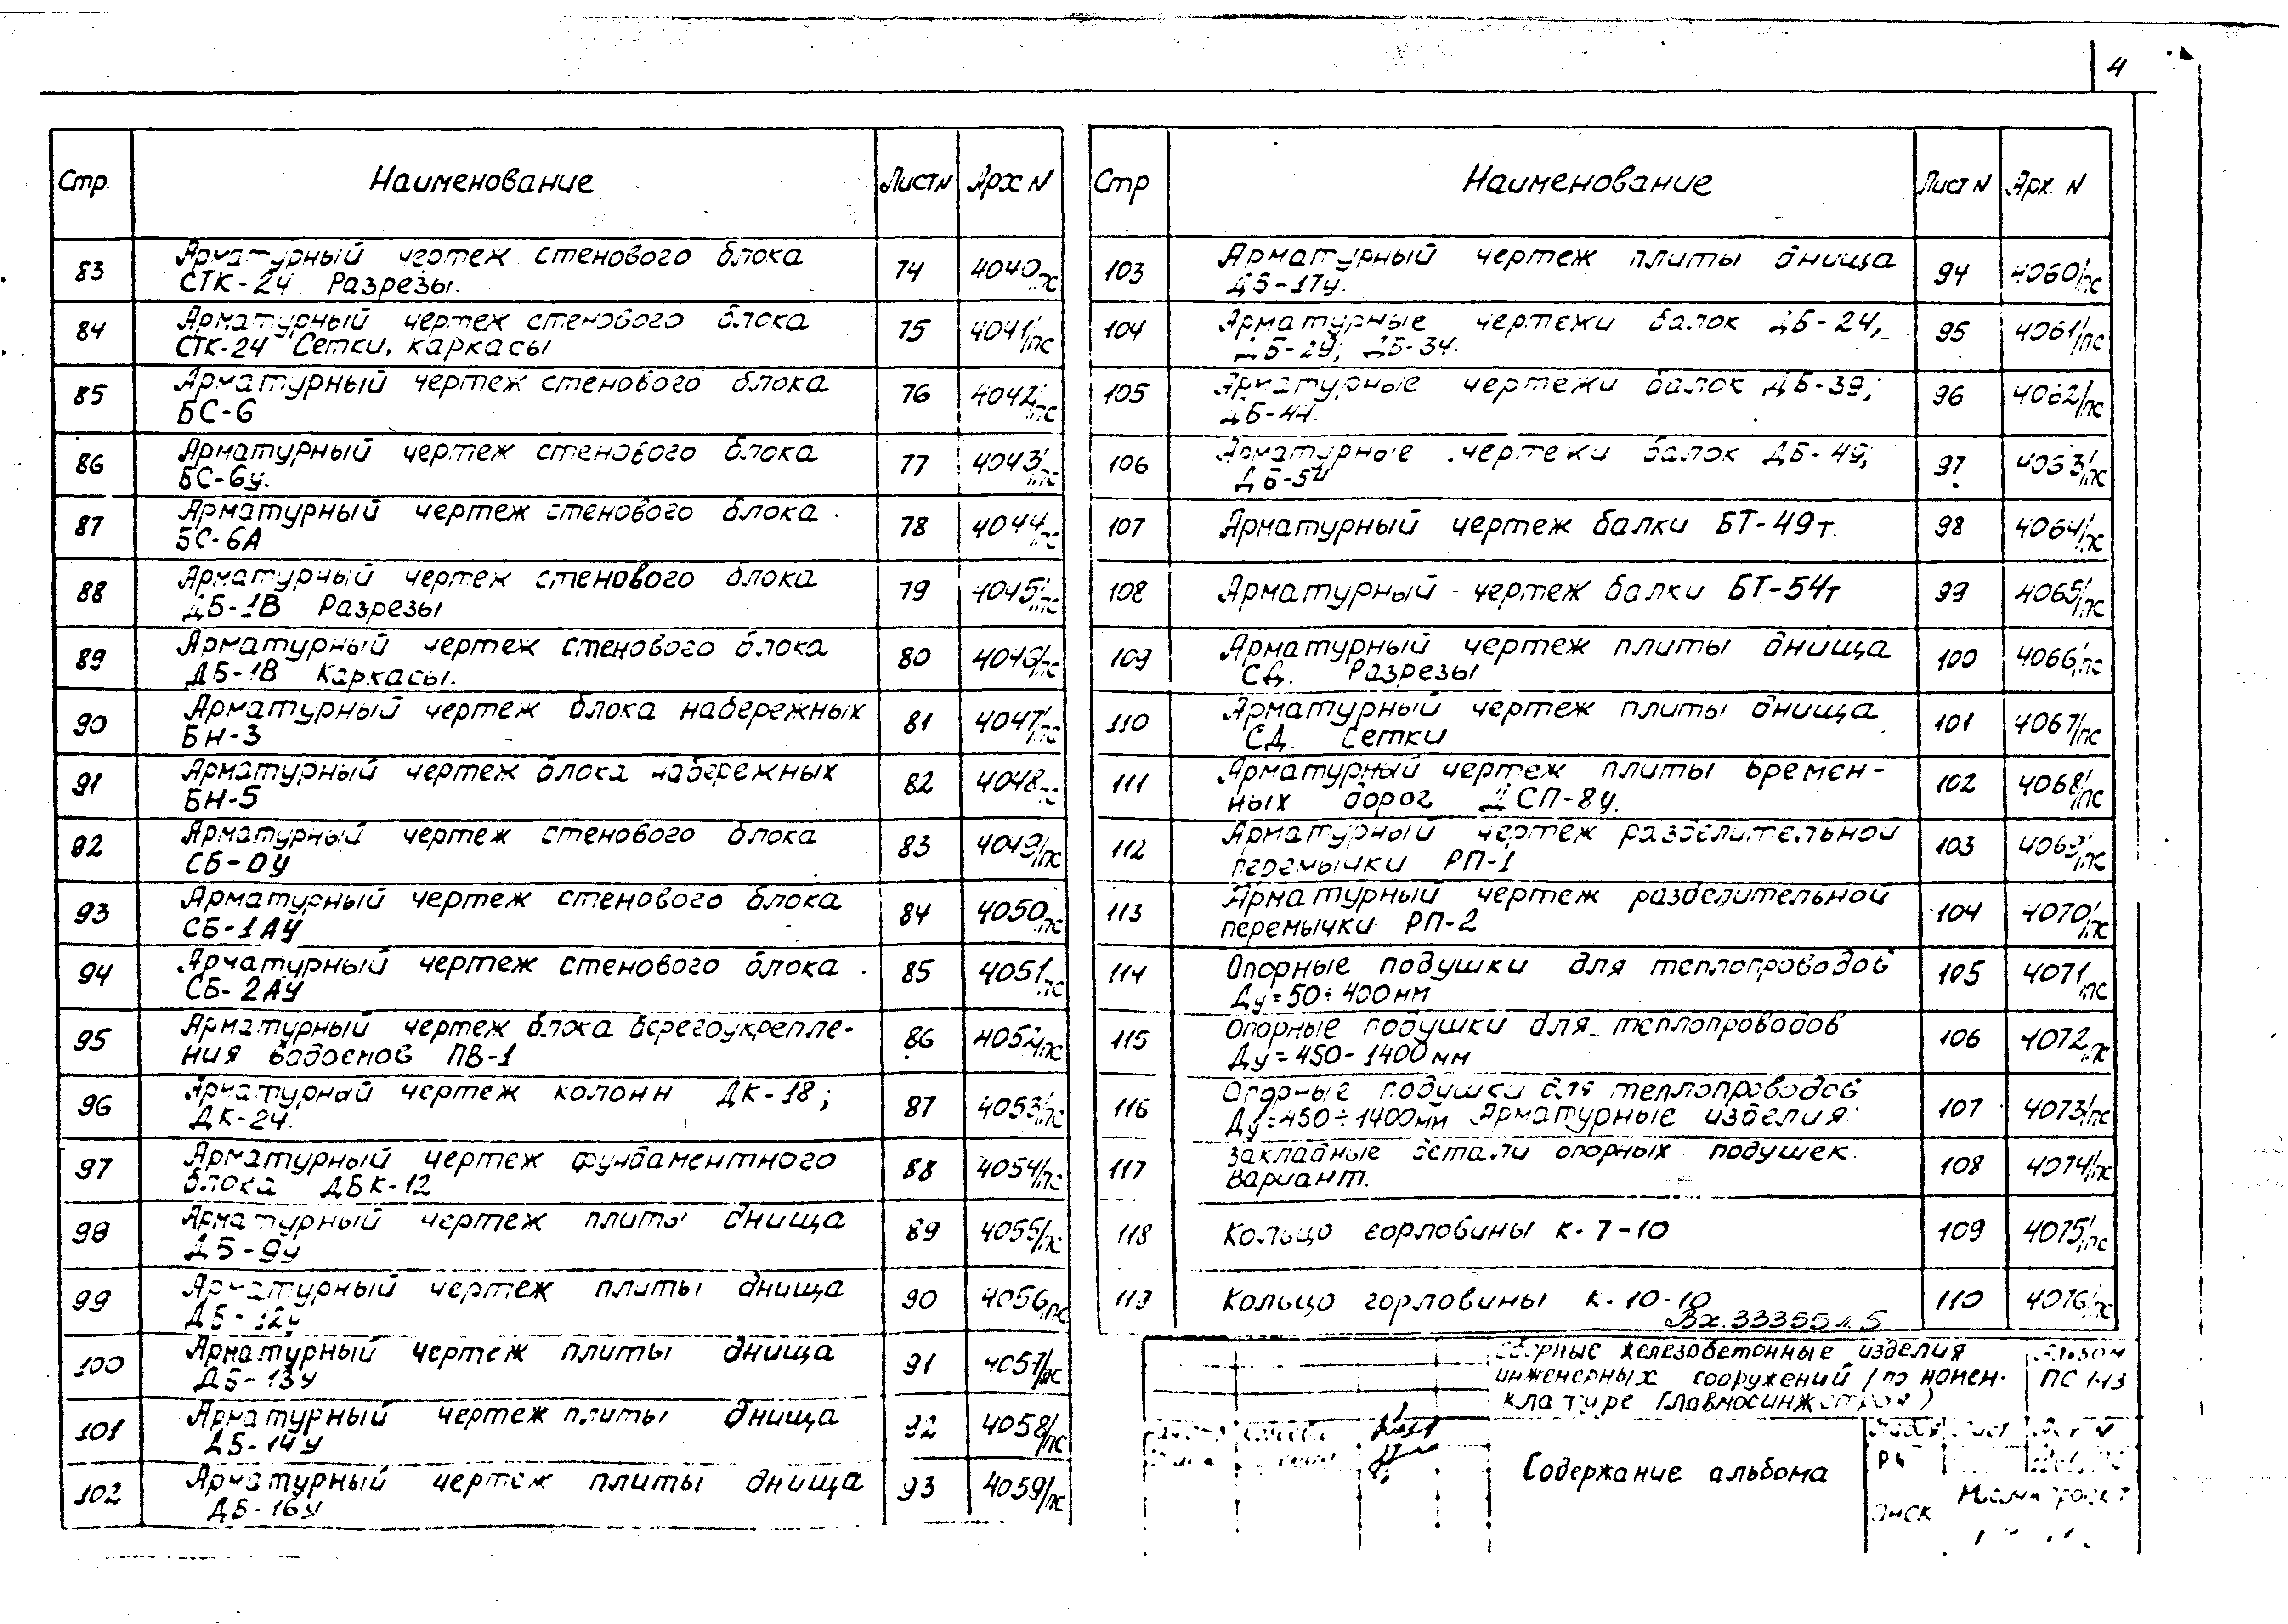 4
Стр. Наименование Лист N Арх N
83 Арматурный чертеж стенового блока 74 4040/пс
СТК-24 Разрезы.
84 Арматурный чертеж стенового блока 75 4041/пс
СТК-24 Сетки, каркасы
85 Арматурный чертеж стенового блока 76 4042/пс
БС-6
86 Арматурный чертеж стенового блока 77 4043/пс
БС-6у.
87 Арматурный чертеж стенового блока 78 4044/пс
БС-6А
88 Арматурный чертеж стенового блока 79 4045/пс
ДБ-1В Разрезы
89 Арматурный чертеж стенового блока 80 4046/пс
ДБ-1В Каркасы.
90 Арматурный чертеж блока набережных 81 4047/пс
БН-3
91 Арматурный чертеж блока набережных 82 4048/пс
БН-5
92 Арматурный чертеж стенового блока 83 4049/пс
СБ-0У
93 Арматурный чертеж стенового блока 84 4050/пс
СБ-1АУ
94 Арматурный чертеж стенового блока 85 4051/пс
СБ-2АУ
95 Арматурный чертеж блока берегоукрепле- 86 4052/пс
ния водоемов ПВ-1
96 Арматурный чертеж колонн ДК-18; 87 4053/пс
ДК-24.
97 Арматурный чертеж фундаментного 88 4054/пс
блока ДБК-12
98 Арматурный чертеж плиты днища 89 4055/пс
ДБ-9У
99 Арматурный чертеж плиты днища 90 4056/пс
ДБ-12У
100 Арматурный чертеж плиты днища 91 4057/пс
ДБ-13У
101 Арматурный чертеж плиты днища 92 4058/пс
ДБ-14У
102 Арматурный чертеж плиты днища 93 4059/пс
ДБ-16У
Стр Наименование Лист N Арх. N
103 Арматурный чертеж плиты днища 94 4060/пс
ДБ-17у.
104 Арматурные чертежи балок ДБ-24, 95 4061/пс
ДБ-29; ДБ-34.
105 Арматурные чертежи балок ДБ-39; 96 4062/пс
ДБ-44.
106 Арматурные чертежи балок ДБ-49; 97 4063/пс
ДБ-54
107 Арматурный чертеж балки БТ-49т. 98 4064/пс
108 Арматурный чертеж балки БТ-54т 99 4065/пс
109 Арматурный чертеж плиты днища 100 4066/пс
СД. Разрезы
110 Арматурный чертеж плиты днища 101 4067/пс
СД. Сетки
111 Арматурный чертеж плиты времен- 102 4068/пс
ных дорог ДСП-8У.
112 Арматурный чертеж разделительной 103 4069/пс
перемычки РП-1
113 Арматурный чертеж разделительной 104 4070/пс
перемычки РП-2
114 Опорные подушки для теплопроводов 105 4071/пс
Ду=50÷400мм
115 Опорные подушки для теплопроводов 106 4072/пс
Ду=450-1400мм
116 Опорные подушки для теплопроводов 107 4073/пс
Ду=450÷1400мм Арматурные изделия.
117 Закладные детали опорных подушек. 108 4074/пс
Вариант.
118 Кольцо горловины К-7-10 109 4075/пс
119 Кольцо горловины К-10-10 110 4076/пс
Вх.33355 л.5
Сборные железобетонные изделия
инженерных сооружений (по номен-
клатуре Главмосинжстроя)
Альбом
ПС 1-13
Содержание альбома
Лист
РЧ